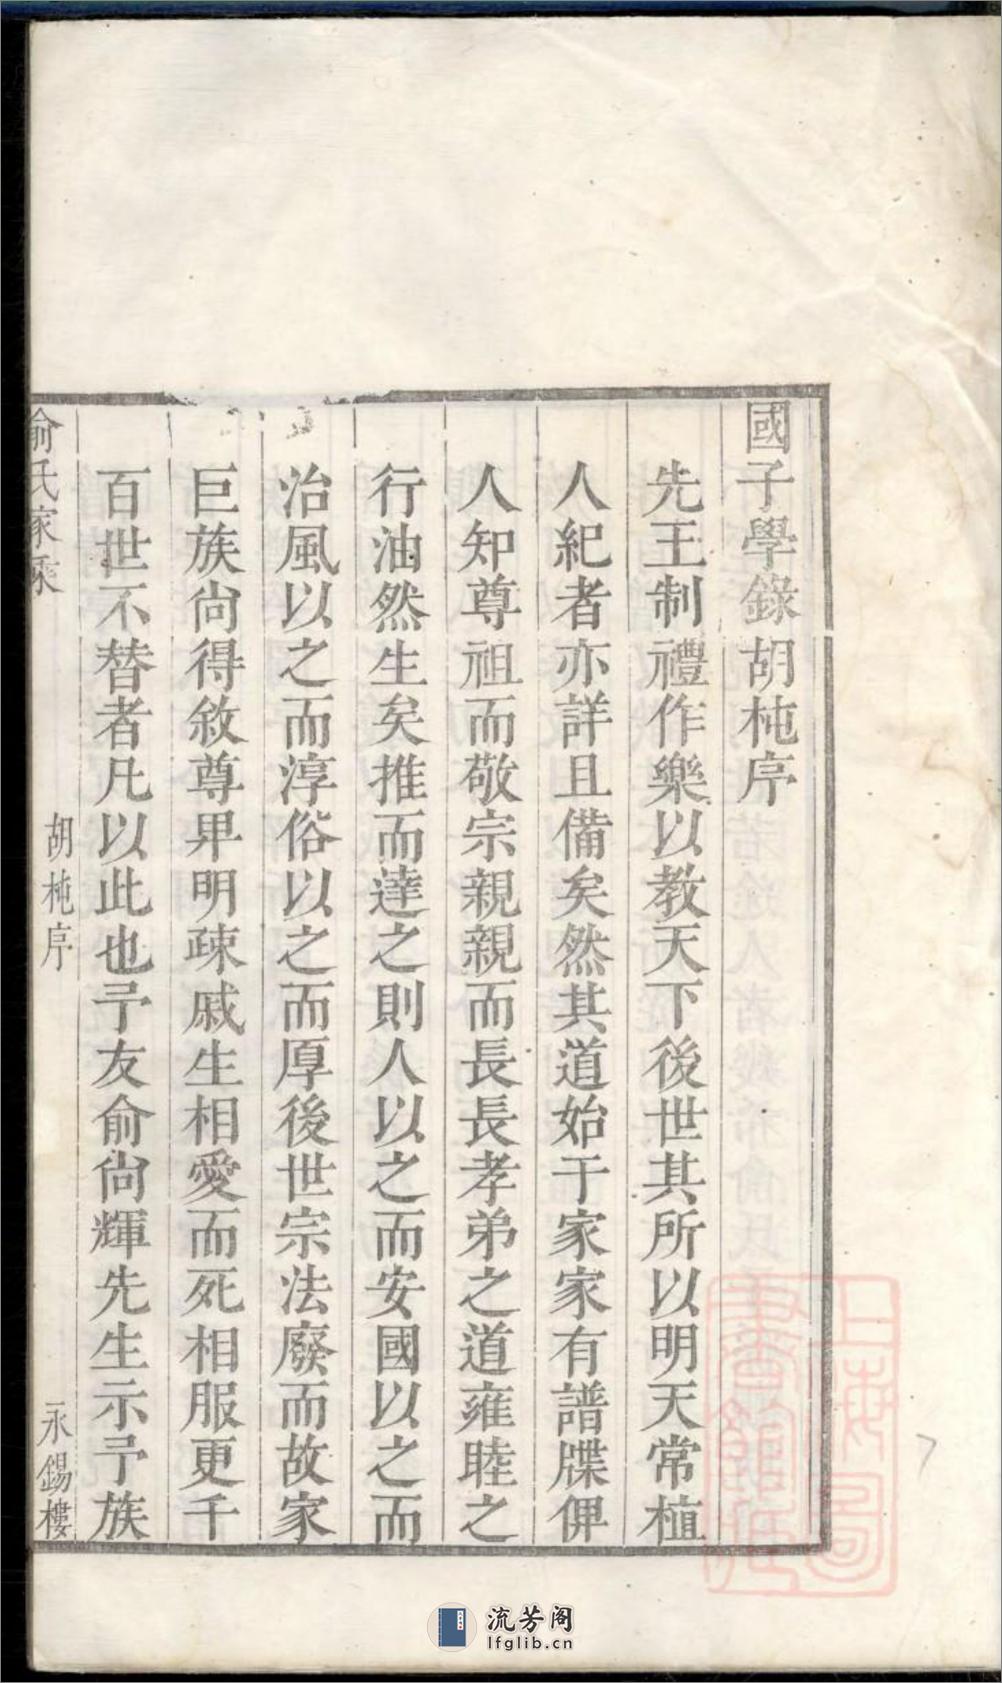 國子學錄胡杶序
先王制禮作樂以教天下後世其所以明天常植
人紀者亦詳且備矣然其道始于家家有譜牒俾
人知尊祖而敬宗親親而長長孝弟之道雍睦之
行油然生矣推而達之則人以之而安國以之而
治風以之而淳俗以之而厚後世宗法廢而故家
巨族尙得敘尊卑明疎戚生相愛而死相服更千
百世不替者凡以此也予友俞尙輝先生示予族
俞氏家乘
胡杶序
一
永錫樓
上海圖
書館藏
7
流芳阁
lfglib.cn